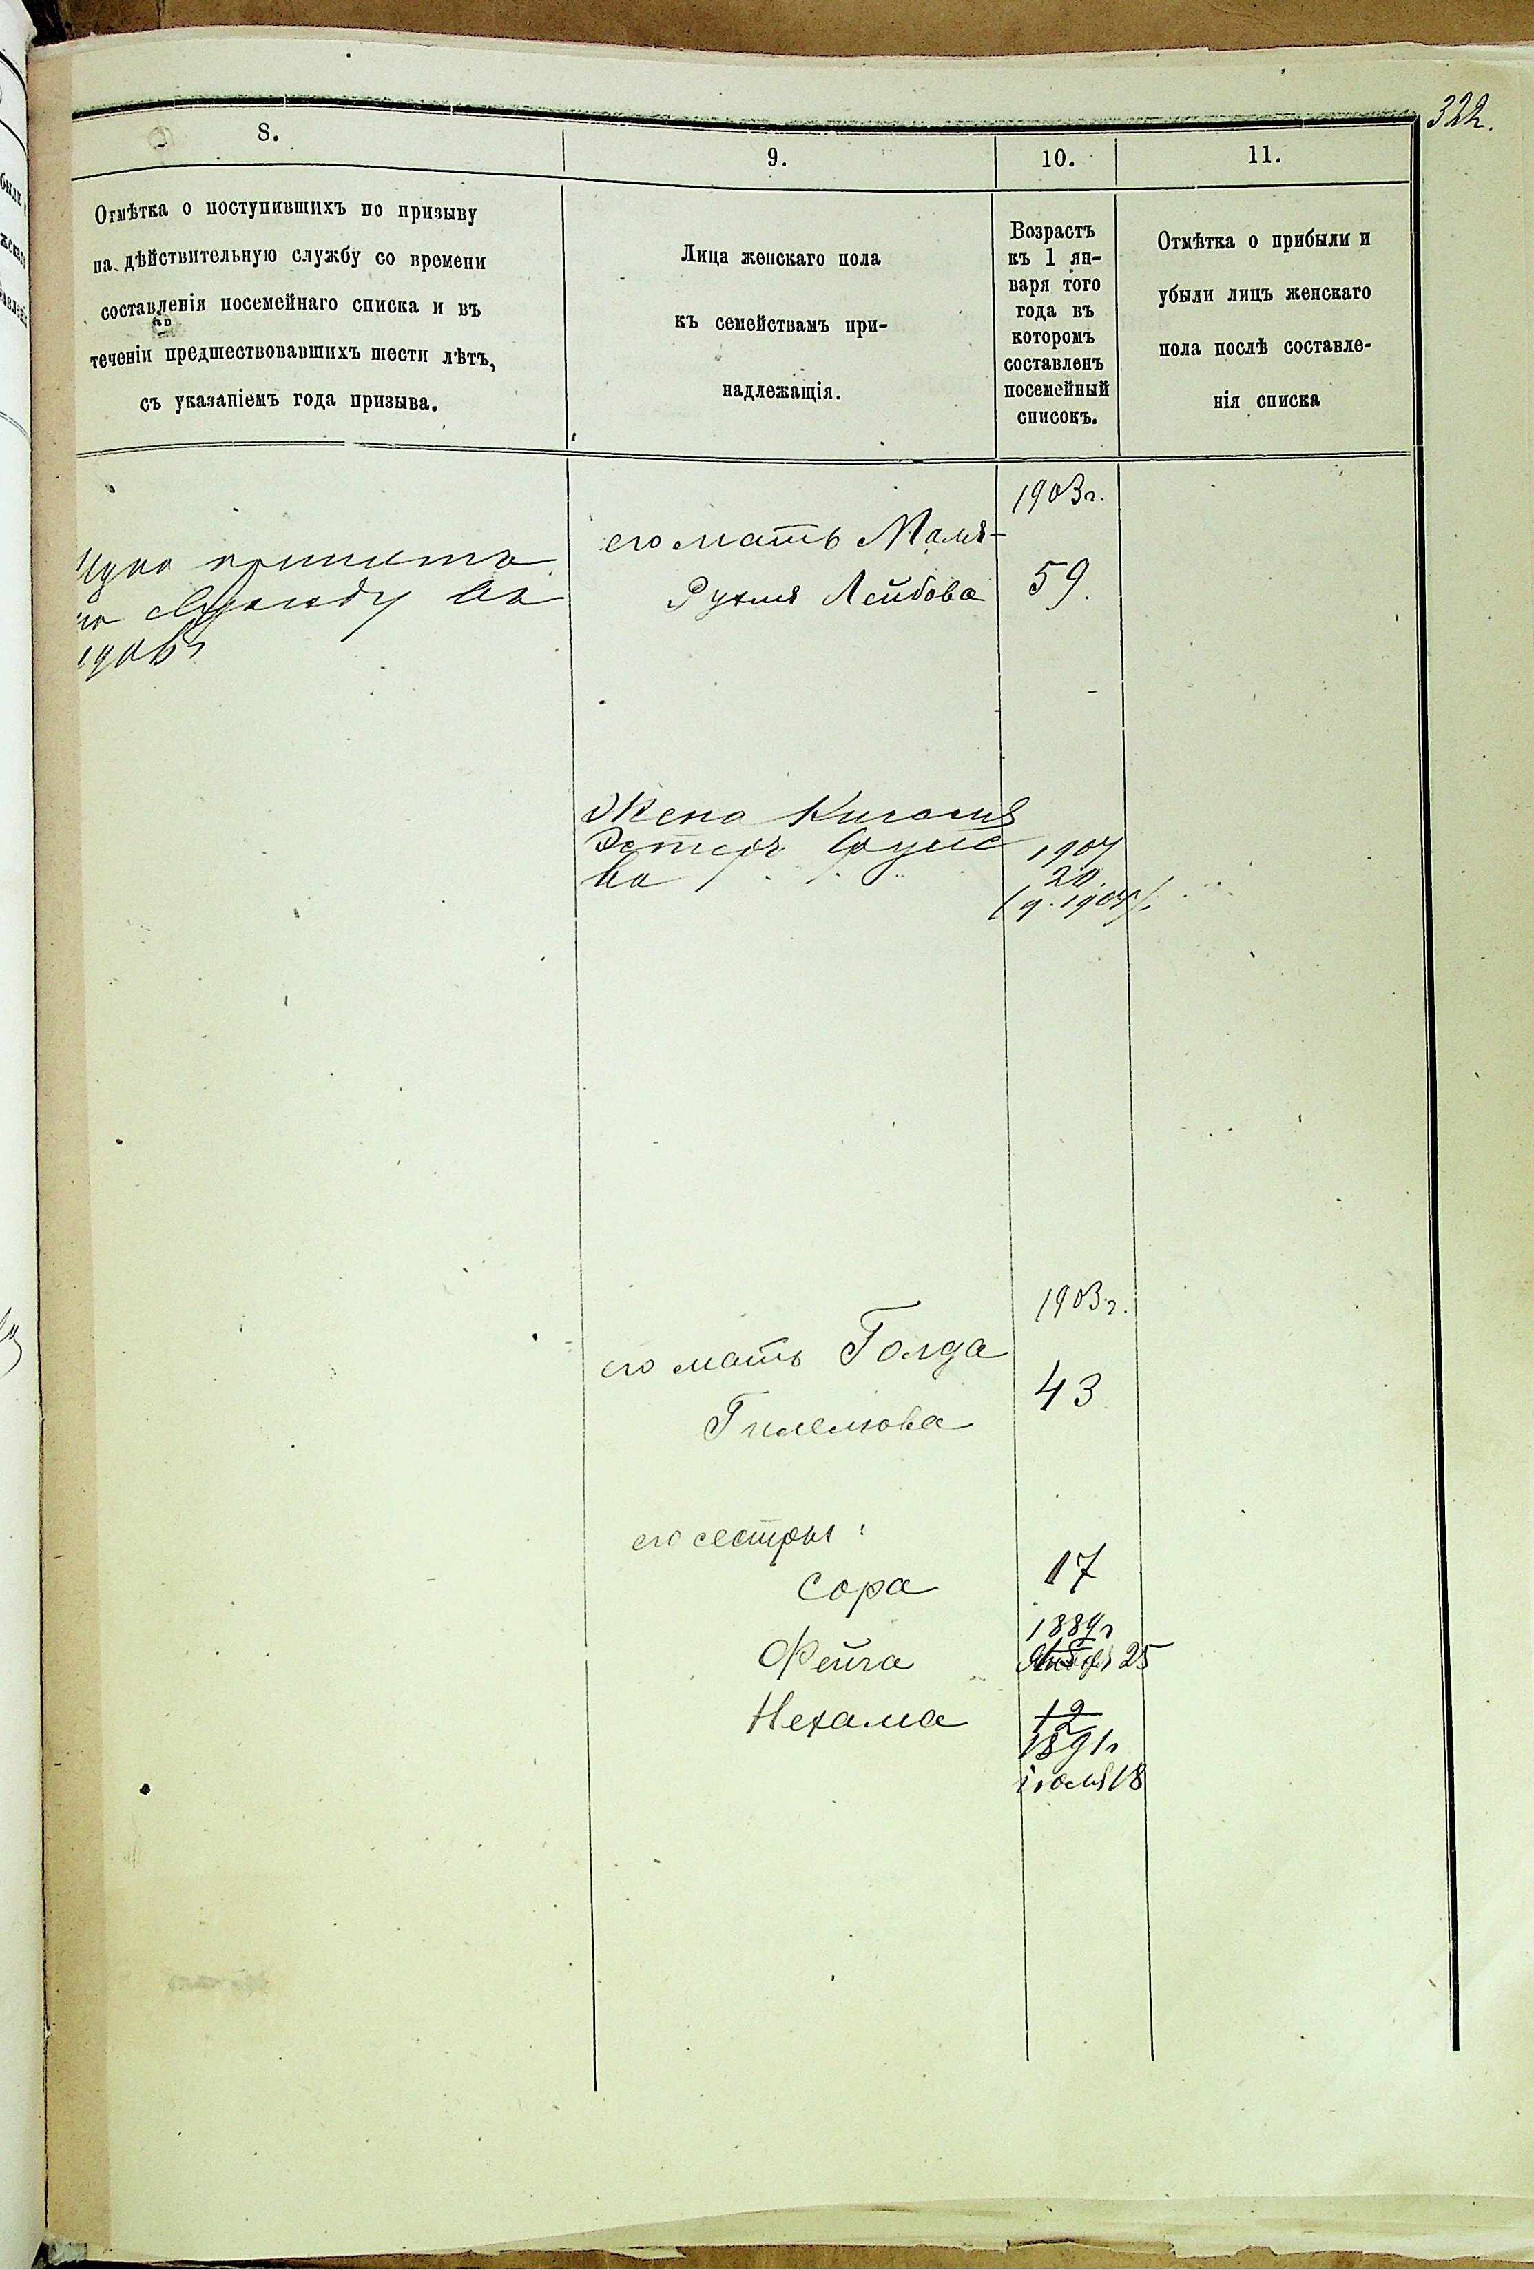 322.
8.
9.
10.
11.
Отмѣтка о поступившихъ по призыву
на дѣйствительную службу со времени
составленія посемейнаго списка и въ
теченіи предшествовавшихъ шести лѣтъ,
съ указаніемъ года призыва.
Лица женскаго пола
къ семействамъ при-
надлежащія.
Возрастъ
къ 1 ян-
варя того
года въ
которомъ
составленъ
посемейный
списокъ.
Отмѣтка о прибыли и
убыли лицъ женскаго
пола послѣ составле-
нія списка
1903г.
его мать Маля-
Рухля Лейбова
59.
принятъ
службу
Жена
Эстеръ
ва
1907
20
его мать Голда
Гилелкова
1903г.
43
его сестры:
Сора
17
Фейга
1889г
25
Нехама
12
1891г
іюля 18